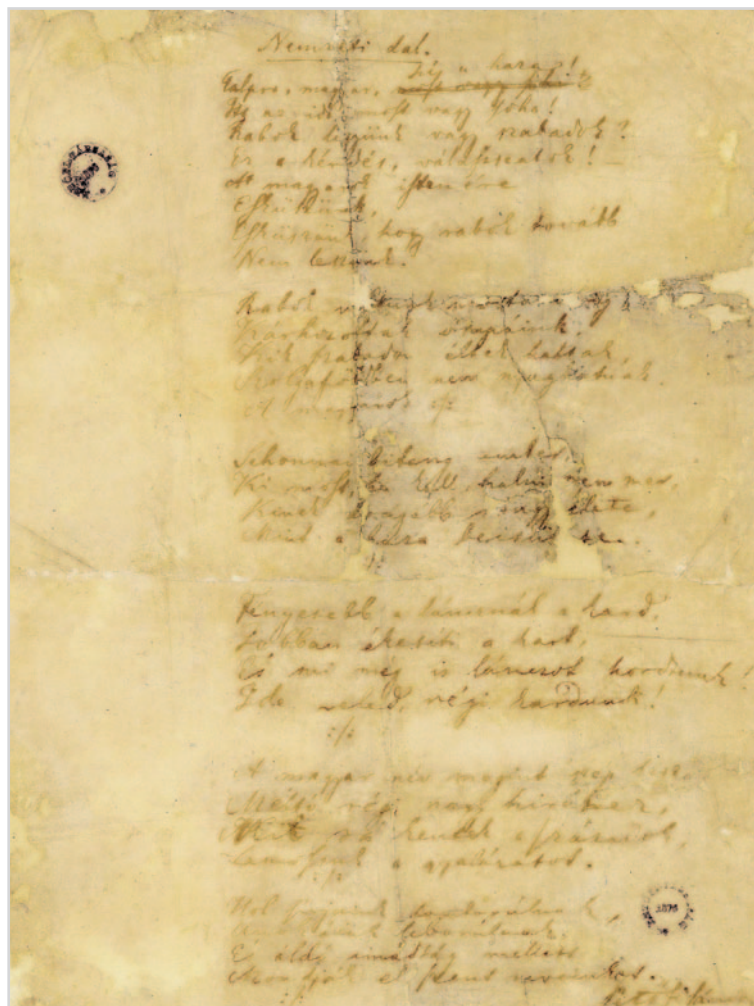 Nemzeti dal.
hí a haza!
Talpra, magyar, most vagy soha!
Itt az idő, most vagy soha!
Rabok legyünk vagy szabadok?
Ez a kérdés, válasszatok! –
A magyarok istenére
Esküszünk,
Esküszünk, hogy rabok tovább
Nem leszünk!
Rabok voltunk mostanáig,
Kárhozottak ősapáink,
Kik szabadon éltek haltak,
Szolgaföldben nem nyughatnak.
A magyarok :/:
Sehonnai bitang ember,
Ki most, ha kell, halni nem mer,
Kinek drágább rongy élete,
Mint a haza becsülete.
:/:
Fényesebb a láncznál a kard,
Jobban ékesíti a kart,
És mi még is lánczot hordunk!
Ide veled, régi kardunk!
:/:
A magyar név megint szép lesz,
Méltó régi nagy hiréhez,
Mit rá kentek a századok,
Lemossuk a gyalázatot.
:/:
Hol sírjaink domborulnak,
Unokáink leborulnak,
És áldó imádság mellett
Mondják el szent neveinket.
:/: